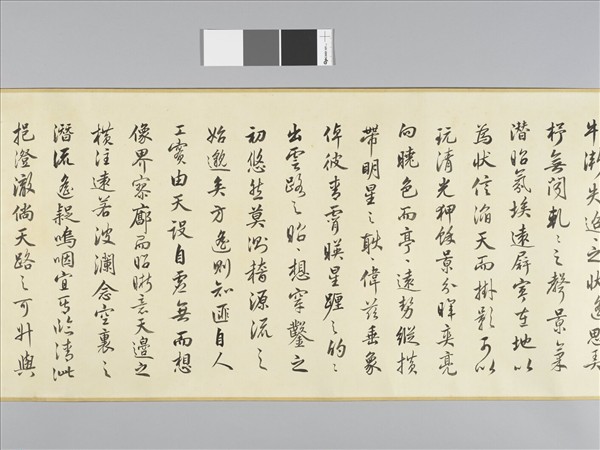 失迢之狀遙思弄
杼無聞軋〻之聲景氣
潛昭氛埃遠屏實在地以
為狀信滔天而掛影可以
玩清光狎餘景分暉奕亮
向曉色而亭〻遠勢縱橫
帶明星之耿〻偉茲垂象
倬彼青霄暎星躔之的〻
出雲路之昭〻想穿鑿之
初悠然莫測稽源流之
始邈矣方遙則知匪自人
工實由天設自虛無而想
像界寥廓而昭晰意天邊之
橫注遠若波瀾念空裏之
潛流遙疑嗚咽宜其臨清泚
挹澄澈倘天路之可升與